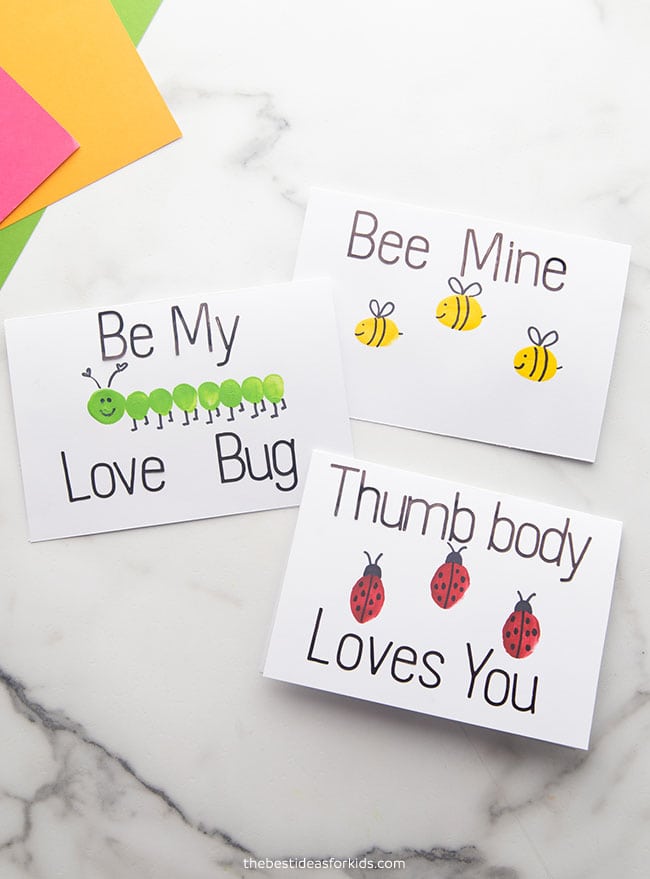 Bee Mine
Be My
Love Bug
Thumb body
Loves You
thebestideasforkids.com